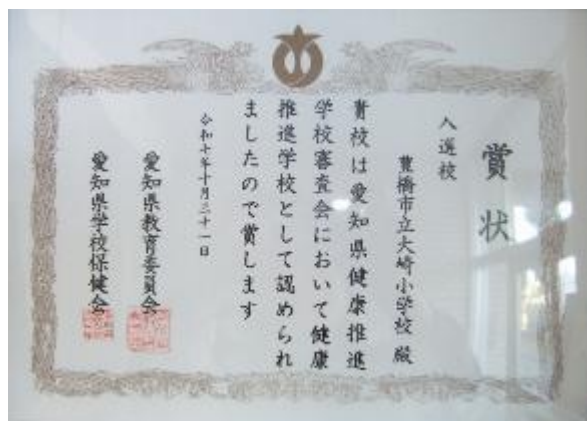 賞状
入選校
豊橋市立大崎小学校 殿
貴校は愛知県健康推進
学校審査会において健康
推進学校として認められ
ましたので賞します
令和七年十月三十一日
愛知県教育委員会
愛知県学校保健会